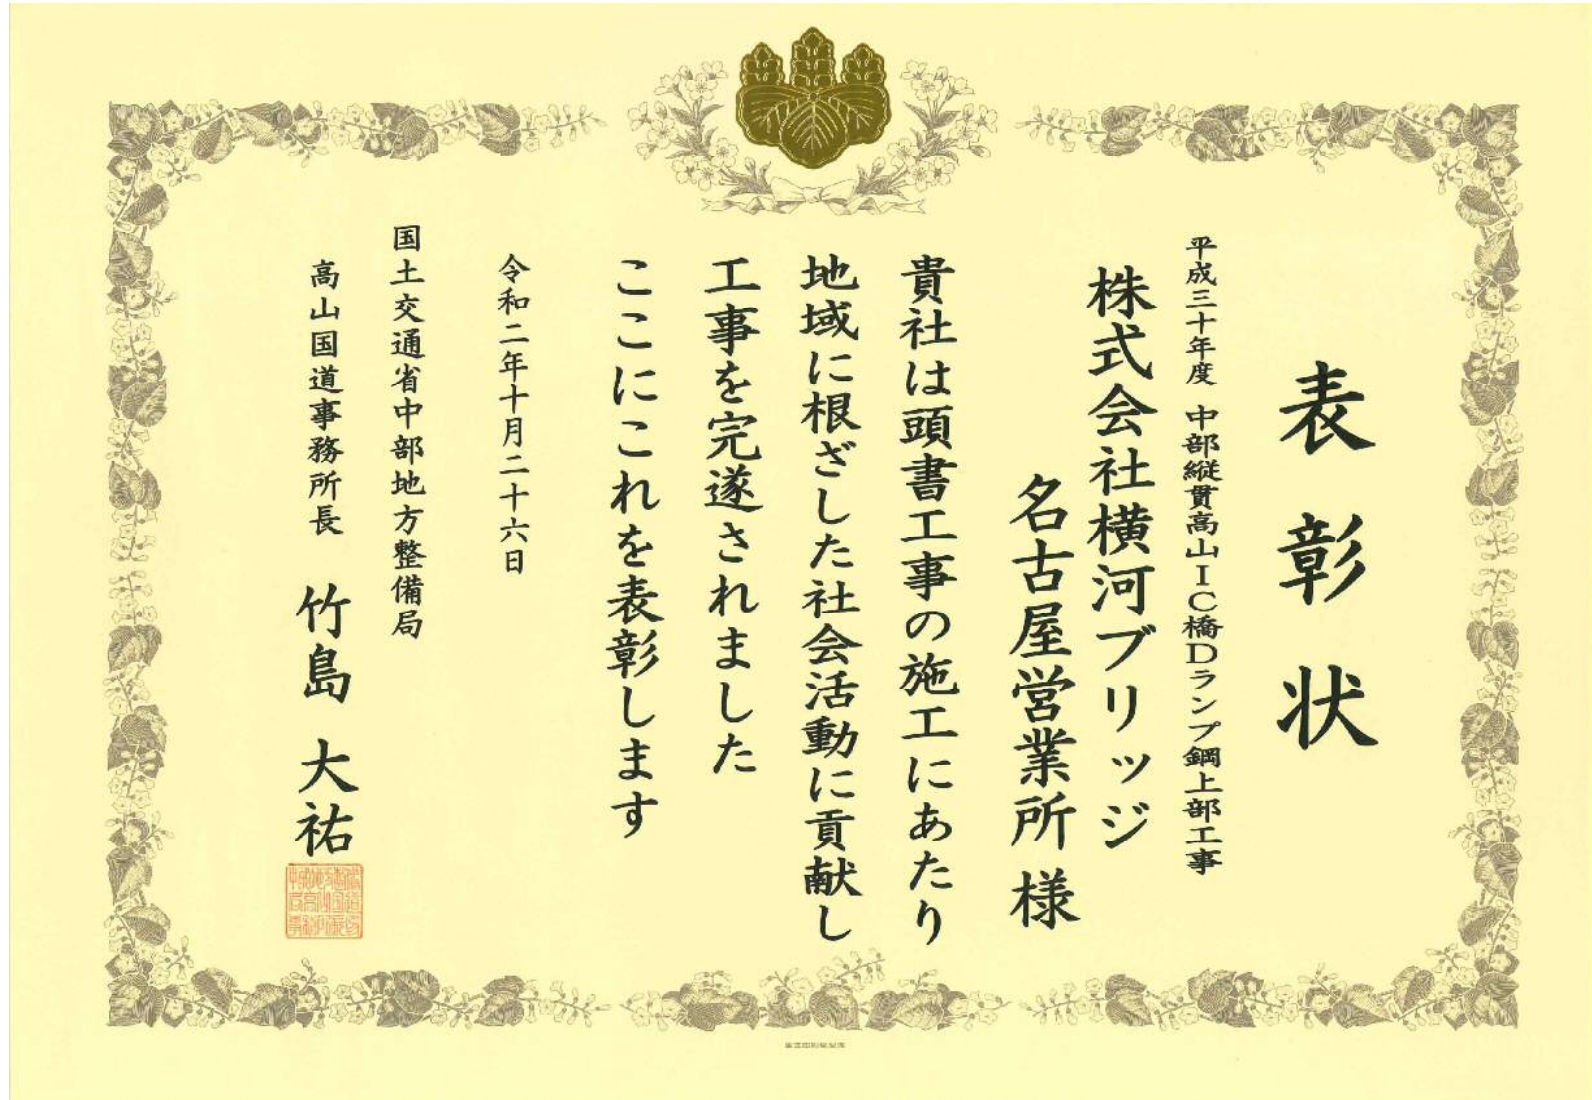 表彰状
平成三十年度　中部縦貫高山IC橋Dランプ鋼上部工事
株式会社横河ブリッジ
名古屋営業所　様
貴社は頭書工事の施工にあたり
地域に根ざした社会活動に貢献し
工事を完遂されました
ここにこれを表彰します
令和二年十月二十六日
国土交通省中部地方整備局
高山国道事務所長　竹島　大祐